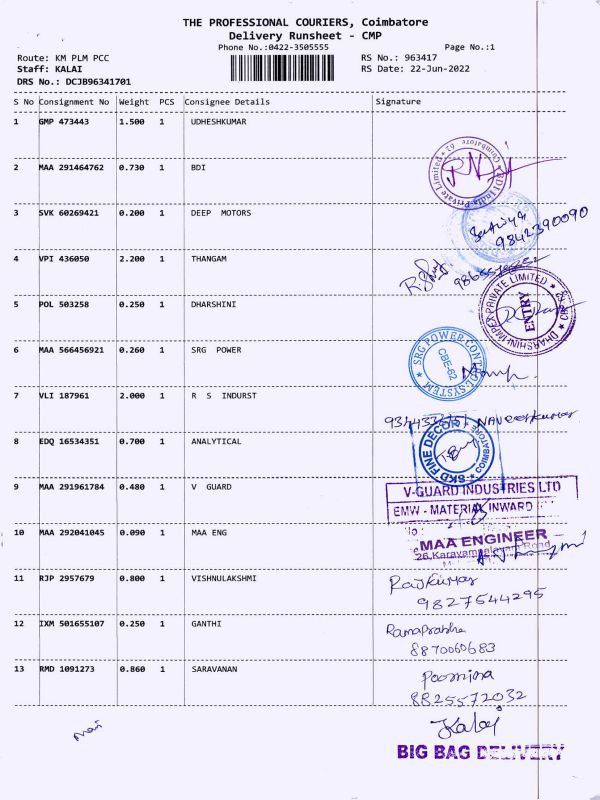 THE PROFESSIONAL COURIERS, Coimbatore
Delivery Runsheet - CMP
Phone No.:0422-3505555 Page No.:1
Route: KM PLM PCC RS No.: 963417
Staff: KALAI RS Date: 22-Jun-2022
DRS No.: DCJB96341701
S No Consignment No Weight PCS Consignee Details Signature
1 GMP 473443 1.500 1 UDHESHKUMAR
2 MAA 291464762 0.730 1 BDI
BDI India Private Limited * Coimbatore
3 SVK 60269421 0.200 1 DEEP MOTORS
9842390090
4 VPI 436050 2.200 1 THANGAM
5 POL 503258 0.250 1 DHARSHINI
DHARSHINI IMPEX PRIVATE LIMITED
ENTRY
6 MAA 566456921 0.260 1 SRG POWER
SRG POWER CONTROL SYSTEM
CBE-62
7 VLI 187961 2.000 1 R S INDURST
Naveenkumar
8 EDQ 16534351 0.700 1 ANALYTICAL
SKD FINE DECOR
COIMBATORE
9 MAA 291961784 0.480 1 V GUARD
V-GUARD INDUSTRIES LTD
EMW - MATERIAL INWARD
10 MAA 292041045 0.090 1 MAA ENG
MAA ENGINEER
26, Karayampalayam Road
11 RJP 2957679 0.800 1 VISHNULAKSHMI
Rajkumar
9827544295
12 IXM 501655107 0.250 1 GANTHI
Ramaprabha
8870060683
13 RMD 1091273 0.860 1 SARAVANAN
Poornima
8825572032
Kalai
BIG BAG DELIVERY